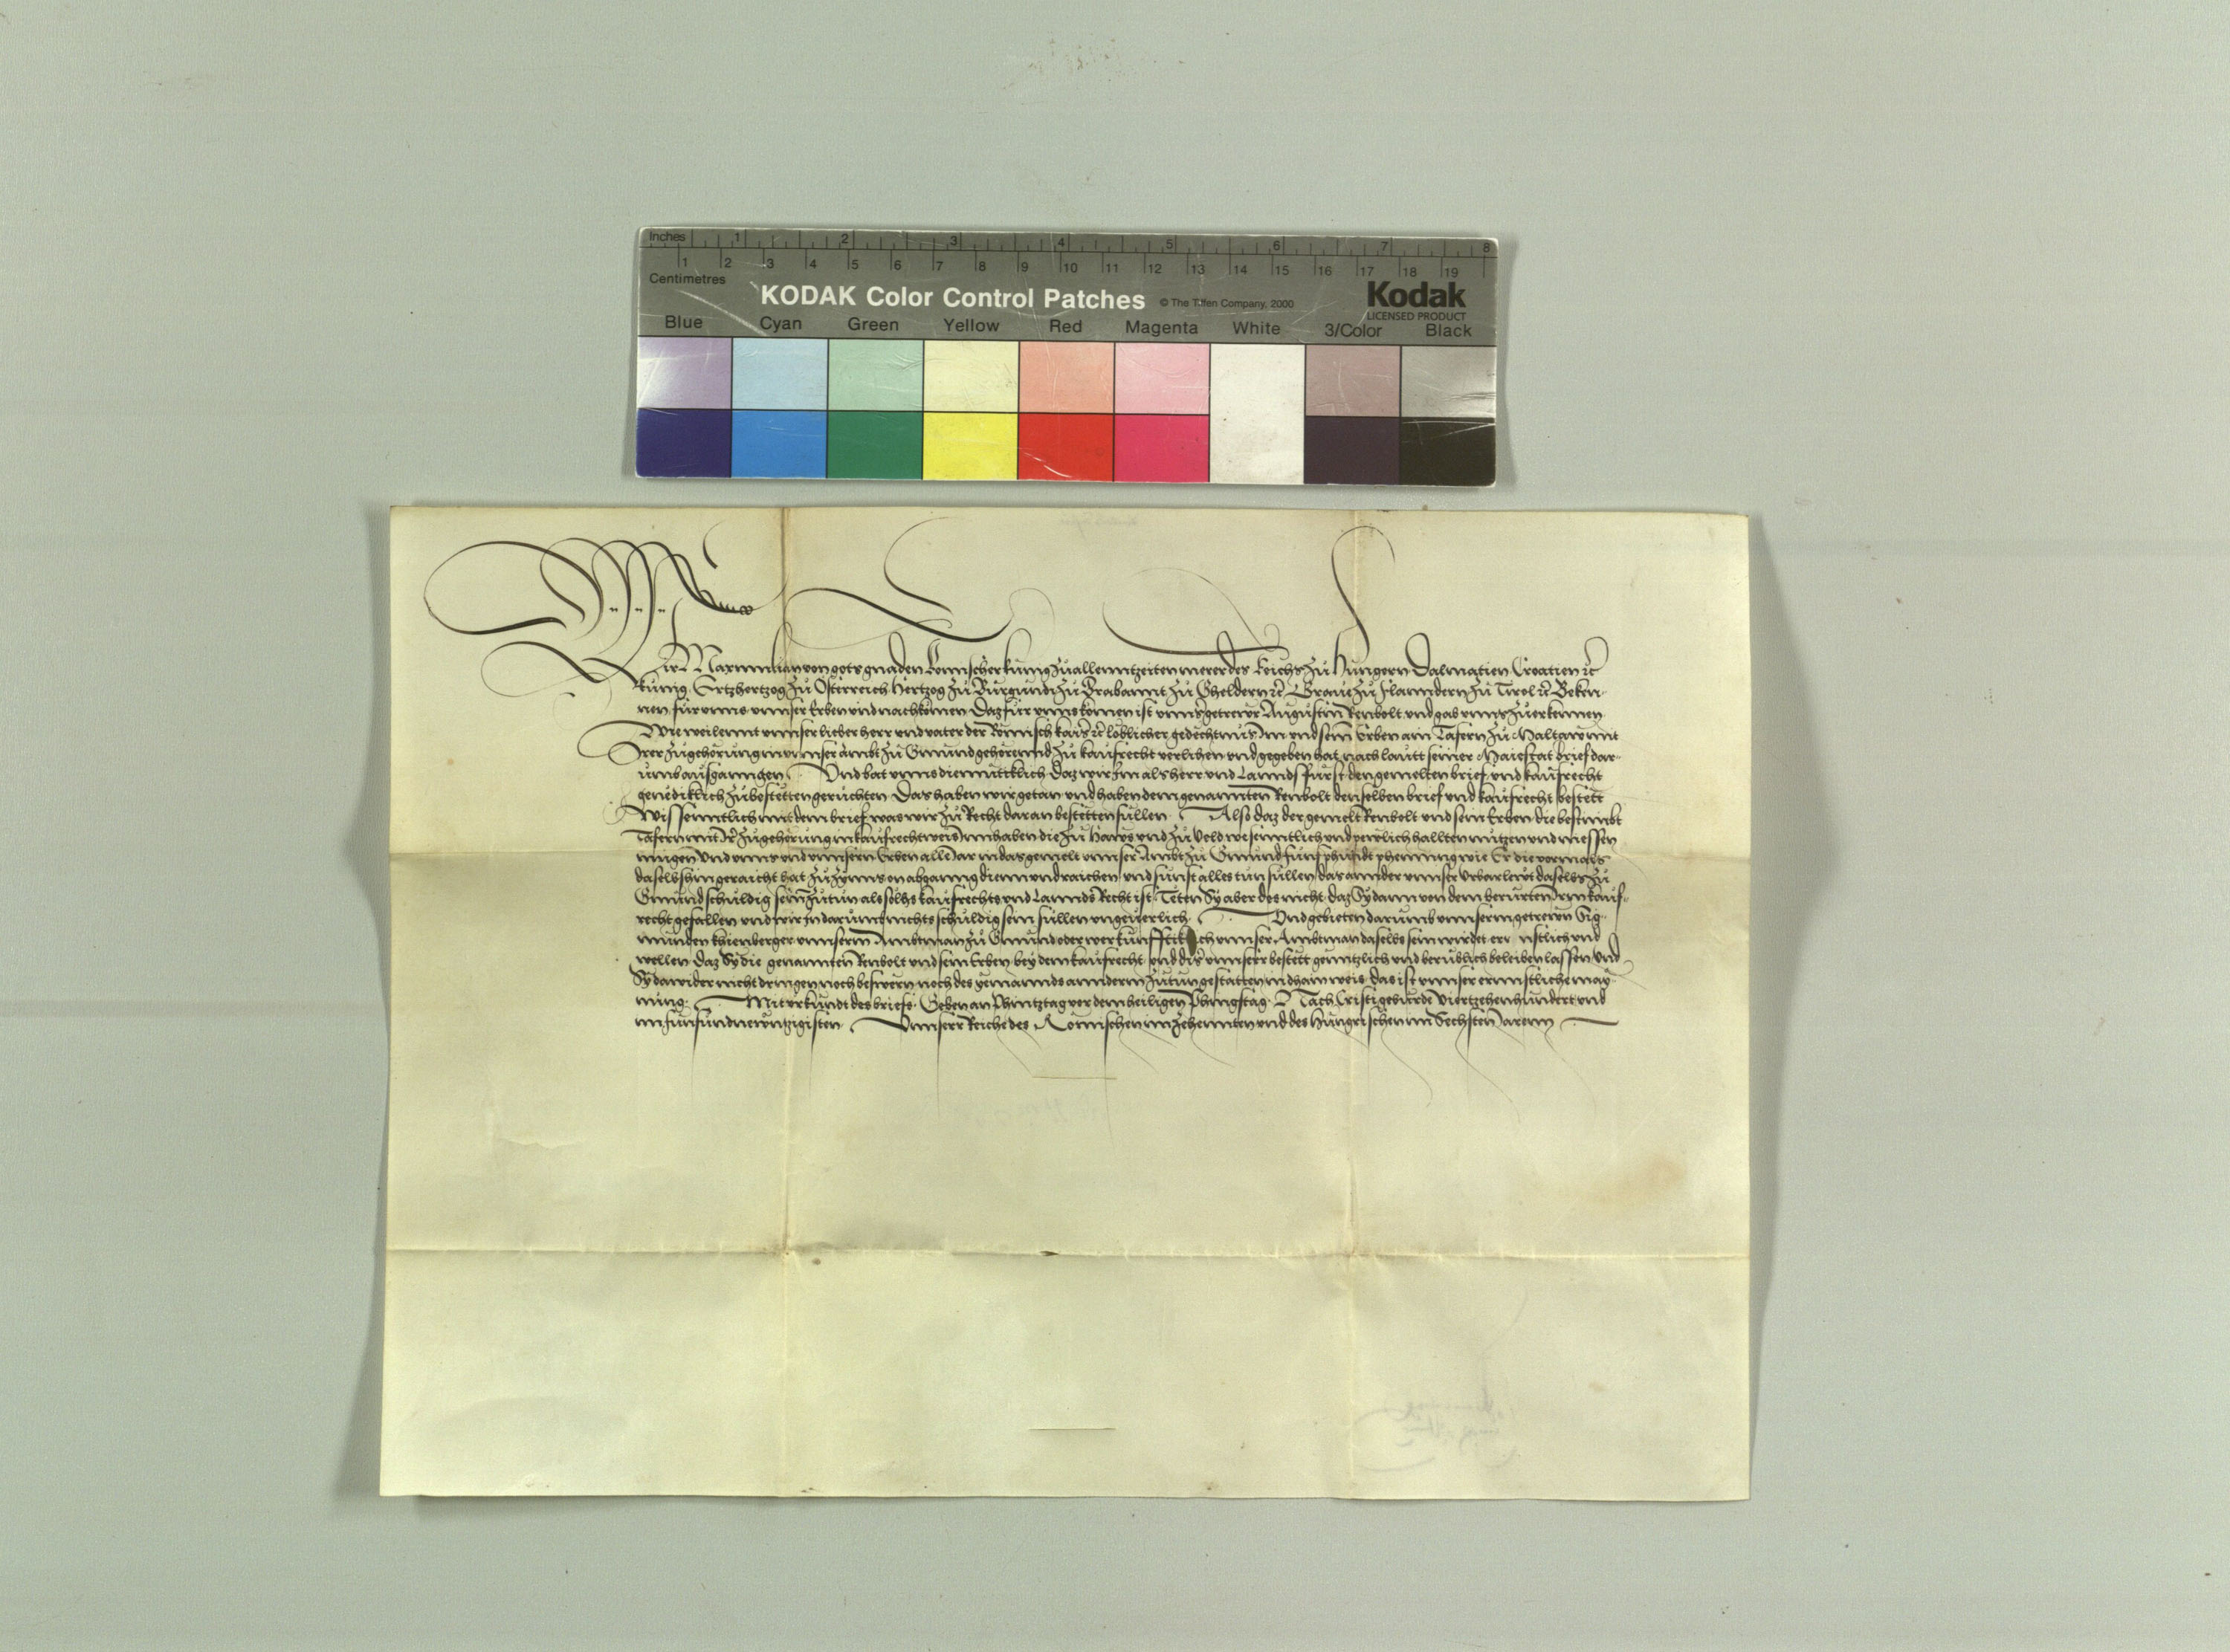 Inches 1 2 3 4 5 6 7 8
1 2 3 4 5 6 7 8 9 10 11 12 13 14 15 16 17 18 19
Centimetres
KODAK Color Control Patches © The Tiffen Company, 2000 Kodak
LICENSED PRODUCT
Blue Cyan Green Yellow Red Magenta White 3/Color Black
Wir Maximilian von gots gnaden Römischer kunig zu allenntzeiten merer des Reichs zu Hungern Dalmatien Croatien ꝛc
kunig Ertzhertzog zu Österreich Hertzog zu Burgundi zu Brabannt zu Gheldern ꝛc Graue zu Flanndern zu Tirol ꝛc Beken-
nen für unns unnser Erben und nachkomen Daz für unns komen ist unnser getrewr Augustin Renbolt und gab unns zuerkennen
Wie weilennt unnser lieber herr und vater der Römisch kaiser ꝛc loblicher gedechtnuss Im und sein Erben ain Tafern zu Maltaw mit
Irer zugehörung in unnser ambt zu Gmund gehörennd zu kaufrecht verlihen und gegeben hat nach lautt seiner Maiestat brief dar-
umb ausganngen Und bat unns diemutiklich daz wir Im als herr und Lannds fürst den gemelten brief und kaufrecht
genediklich zubestetten geruchten Das haben wir getan und haben dem genannten Renbolt denselben brief und kaufrecht bestett
Wissenntlich mit dem brief was wir zu Recht daran bestetten sullen Also daz der gemelt Renbolt und sein Erben die bestimbt
Tafern mit Ir zugehörung in kaufrechtweis Innhaben die zu Haws und zu Veld wesenntlich und pewlich hallten nutzen und niessen
mugen Und unns und unnsern Erben alle Jar in das gemelt unnser Ambt zu Gmund funf phundt phenning wie Er die vormals
daselbshin geraicht hat zu zynns on abganng dienn und raichen und sunst alles tun sullen das annder unnser Urbarlewt daselbs zu
Gmund schuldig sein zutun als solhs kaufrechts und Lannds Recht ist Teten Sy aber des nicht daz Sy dann von dem berurten Irm kauf-
recht gefallen und wir In darumb nichts schuldig sein sullen ungeuerlich Und gebieten darumb unnserm getrewn Sig-
munden Khienberger unnserm Ambtman zu Gmund oder wer kunfftiklich unnser Ambtman daselbs sein wirdet ernnstlich und
wellen daz Sy die genannten Renbolt und sein Erben bey dem kaufrecht und diser unnserr bestett genntzlich und berublich beleiben lassen Und
Sy dawider nicht dringen noch beswern noch des yemannds anndern zutun gestatten in dhain weis das ist unnser ernnstliche may-
nung Mit urkundt des briefs Geben an Phintztag vor dem heiligen Phingstag Nach Cristi geburde Viertzehenhundert und
im funfundnewntzigisten Unnserr Reiche des Römischen im zehennten und des Hungrischen im Sechsten Jarenn